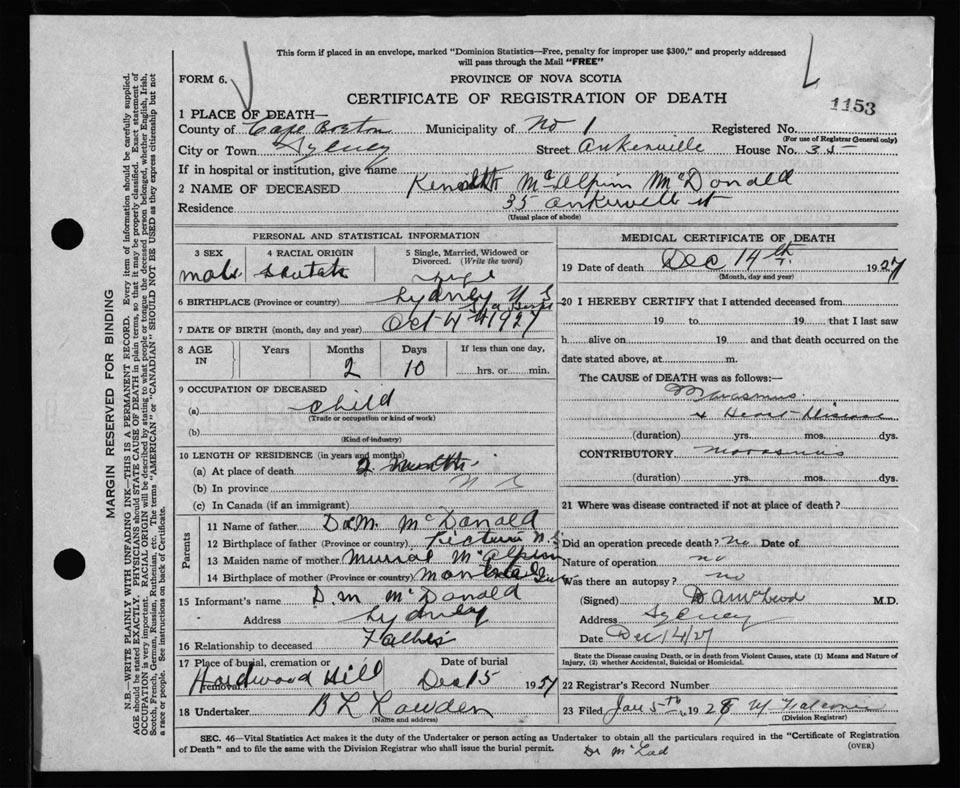 This form if placed in an envelope, marked "Dominion Statistics—Free, penalty for improper use $300," and properly addressed
will pass through the Mail "FREE"
FORM 6.
PROVINCE OF NOVA SCOTIA
CERTIFICATE OF REGISTRATION OF DEATH
1153
1 PLACE OF DEATH—
County of Cape Breton Municipality of No 1 Registered No.
(For use of Registrar General only)
City or Town Sydney Street Ankerville House No. 35
If in hospital or institution, give name
2 NAME OF DECEASED Kenneth McAlpin McDonald
Residence 35 Ankerville st
(Usual place of abode)
PERSONAL AND STATISTICAL INFORMATION
3 SEX 4 RACIAL ORIGIN 5 Single, Married, Widowed or Divorced. (Write the word)
male Scotch
6 BIRTHPLACE (Province or country) Sydney N S
7 DATE OF BIRTH (month, day and year) Oct 4th 1927
8 AGE IN Years Months Days If less than one day,
2 10 hrs. or min.
9 OCCUPATION OF DECEASED
(a) child
(Trade or occupation or kind of work)
(b)
(Kind of industry)
10 LENGTH OF RESIDENCE (in years and months)
(a) At place of death 2 months
(b) In province N S
(c) In Canada (if an immigrant)
Parents
11 Name of father D.M. McDonald
12 Birthplace of father (Province or country) N.S.
13 Maiden name of mother McAlpin
14 Birthplace of mother (Province or country) Montreal Que
15 Informant's name D. M McDonald
Address Sydney
16 Relationship to deceased Father
17 Place of burial, cremation or removal Date of burial
Hardwood Hill Dec 15 1957
18 Undertaker B L Lowden
(Name and address)
MEDICAL CERTIFICATE OF DEATH
19 Date of death Dec 14th 1927
(Month, day and year)
20 I HEREBY CERTIFY that I attended deceased from
19 to 19 that I last saw
h alive on 19 and that death occurred on the
date stated above, at m.
The CAUSE OF DEATH was as follows:—
Marasmus
+ Heart Disease
(duration) yrs. mos. dys.
CONTRIBUTORY Marasmus
(duration) yrs. mos. dys.
21 Where was disease contracted if not at place of death?
Did an operation precede death? No Date of
Nature of operation no
Was there an autopsy? no
(Signed) D A McLeod M.D.
Address Sydney
Date Dec 14/27
State the Disease causing Death, or in death from Violent Causes, state (1) Means and Nature of
Injury, (2) whether Accidental, Suicidal or Homicidal.
22 Registrar's Record Number
23 Filed Jan 5th 1928
(Division Registrar)
SEC. 46—Vital Statistics Act makes it the duty of the Undertaker or person acting as Undertaker to obtain all the particulars required in the "Certificate of Registration
of Death" and to file the same with the Division Registrar who shall issue the burial permit.
(OVER)
Dr McLeod
MARGIN RESERVED FOR BINDING
N.B.—WRITE PLAINLY WITH UNFADING INK—THIS IS A PERMANENT RECORD. Every item of information should be carefully supplied.
AGE should be stated EXACTLY. PHYSICIANS should STATE CAUSE OF DEATH in plain terms, so that it may be properly classified. Exact statement of
OCCUPATION is very important. RACIAL ORIGIN will be described by stating to what people or tongue the deceased person belonged, whether English, Irish,
Scotch, French, German, Russian, Ruthenian, etc. The terms "AMERICAN" or "CANADIAN" SHOULD NOT BE USED as they express citizenship but not
a race or people. See instructions on back of Certificate.